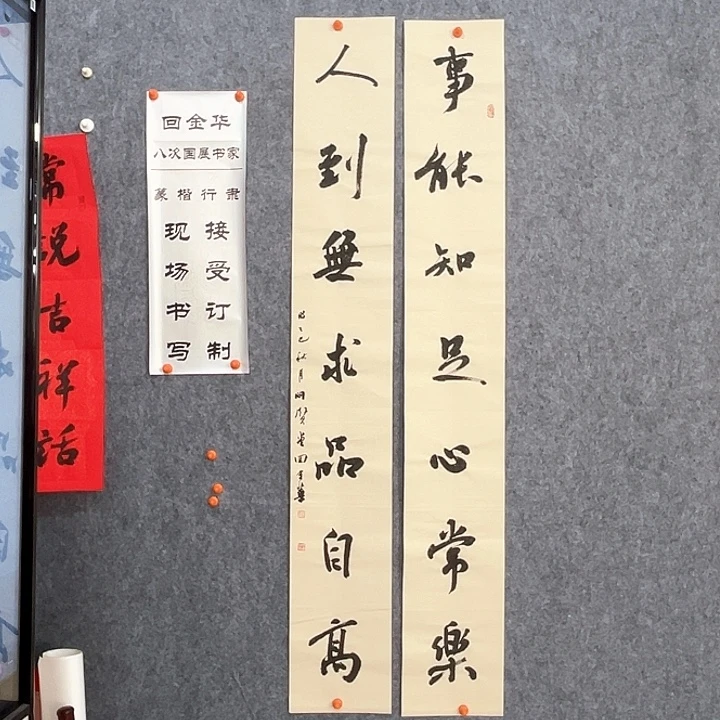 事能知足心常樂
人到無求品自高
乙巳秋月
回金华
八次国展书家
篆楷行隶
接受订制
现场书写
常说吉祥话